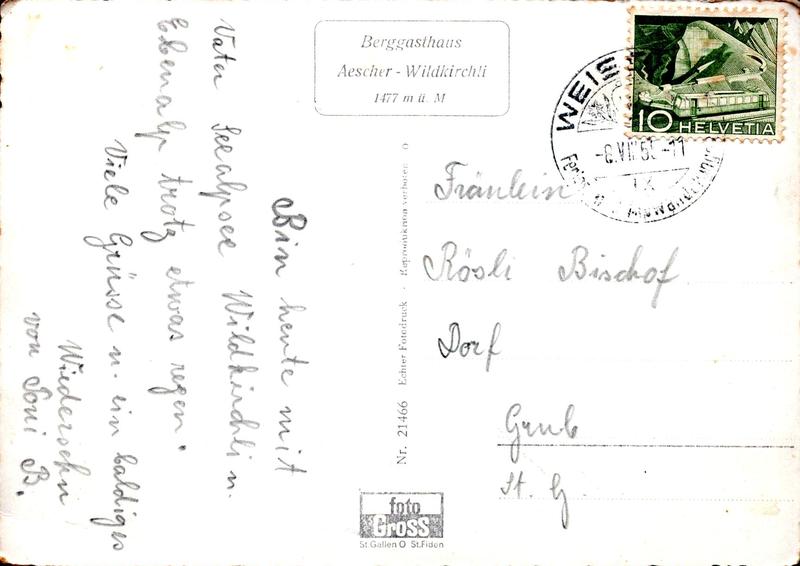 Berggasthaus
Aescher - Wildkirchli
1477 m ü. M
10 HELVETIA
WEISS
-8.VII.5 -11
Bin heute mit
Vater Seealpsee Wildkirchli u.
Ebenalp trotz etwas regen.
Viele Grüsse u. ein baldiges
Wiedersehn
von Toni B.
Nr. 21466 Echter Fotodruck · Reproduktion verboten
Fräulein
Rösli Bischof
Dorf
Grub
St. G.
foto
GROSS
St. Gallen O St. Fiden